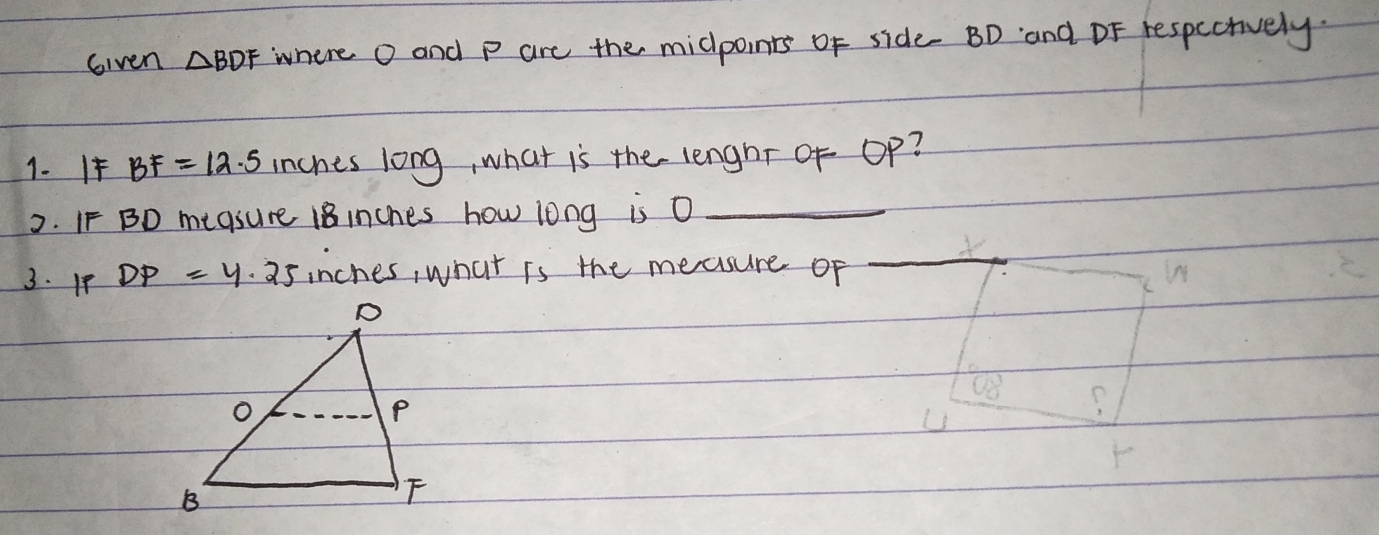 Given △BDF where O and P are the midpoints OF side BD and DF respectively.
1. IF BF = 12.5 inches long, what is the lenght OF OP?
2. IF BD measure 18 inches how long is O
3. IF DP = 4.25 inches, what is the measure OF
D
O P
B F